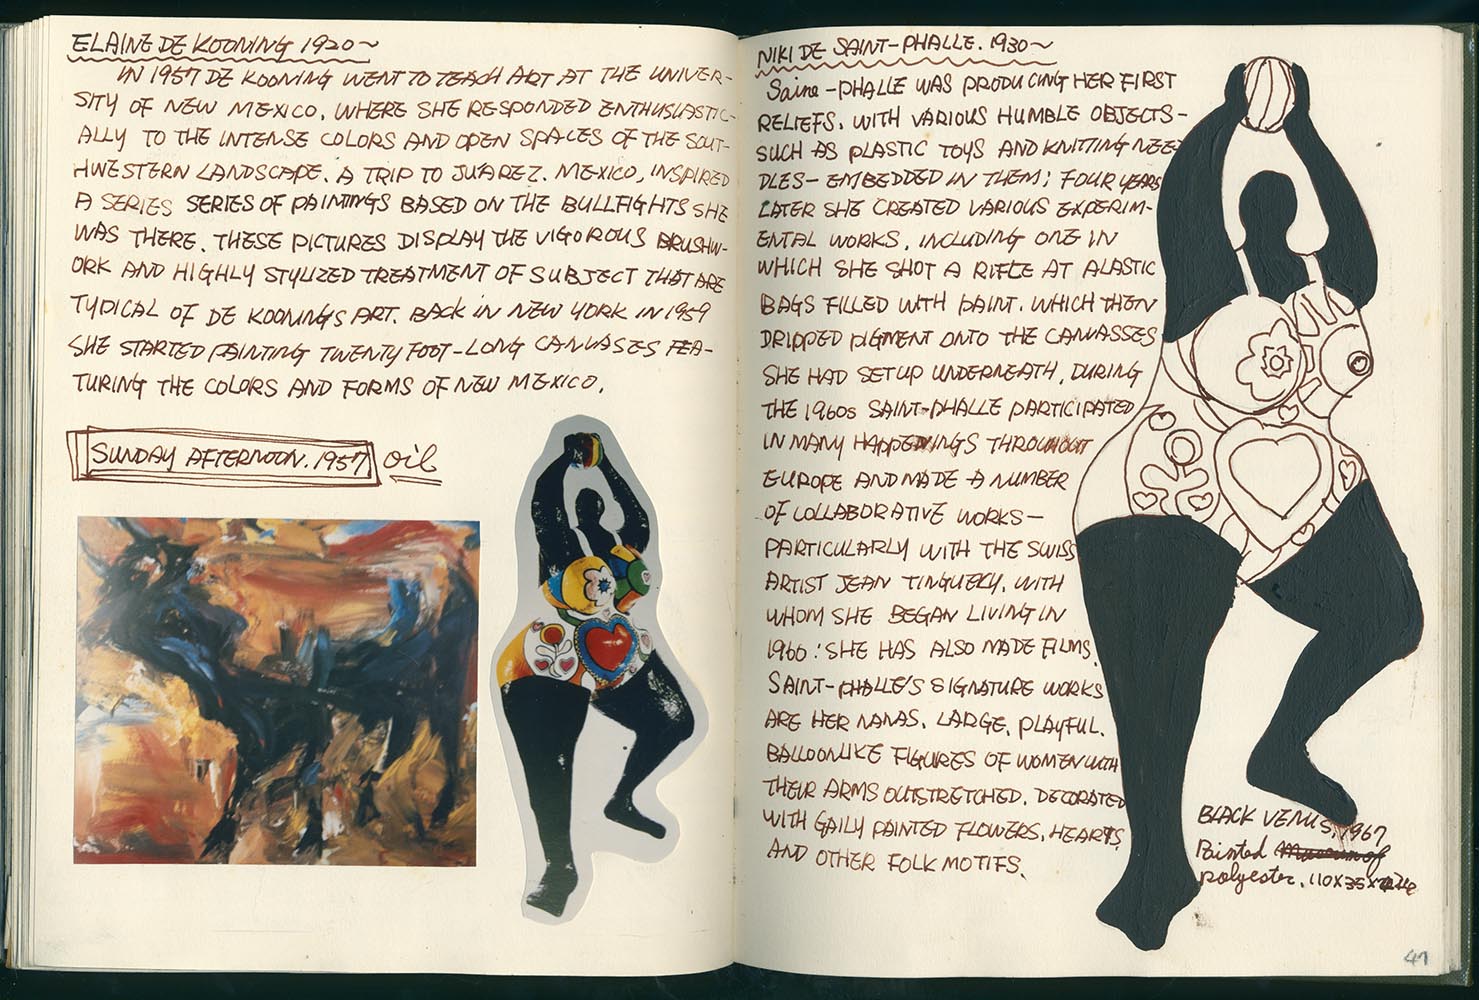 ELAINE DE KOONING 1920~
IN 1957 DE KOONING WENT TO TEACH ART AT THE UNIVER-
SITY OF NEW MEXICO, WHERE SHE RESPONDED ENTHUSIASTIC-
ALLY TO THE INTENSE COLORS AND OPEN SPACES OF THE SOUT-
HWESTERN LANDSCAPE. A TRIP TO JUÁREZ. MEXICO, INSPIRED
A SERIES SERIES OF PAINTINGS BASED ON THE BULLFIGHTS SHE
WAS THERE. THESE PICTURES DISPLAY THE VIGOROUS BRUSHW-
ORK AND HIGHLY STYLIZED TREATMENT OF SUBJECT THAT ARE
TYPICAL OF DE KOONINGS ART. BACK IN NEW YORK IN 1959
SHE STARTED PAINTING TWENTY FOOT-LONG CANVASES FEA-
TURING THE COLORS AND FORMS OF NEW MEXICO.
SUNDAY AFTERNOON. 1957 oil
NIKI DE SAINT-PHALLE. 1930~
Saine-PHALLE WAS PRODUCING HER FIRST
RELIEFS. WITH VARIOUS HUMBLE OBJECTS-
SUCH AS PLASTIC TOYS AND KNITTING NEE
DLES- EMBEDDED IN THEM; FOUR YEARS
LATER SHE CREATED VARIOUS EXPERIM-
ENTAL WORKS, INCLUDING ONE IN
WHICH SHE SHOT A RIFLE AT ALASTIC
BAGS FILLED WITH PAINT. WHICH THEN
DRIPPED PIGMENT ONTO THE CANVASSES
SHE HAD SET UP UNDERNEATH, DURING
THE 1960s SAINT-PHALLE PARTICIPATED
IN MANY HAPPENINGS THROUHOUT
EUROPE AND MADE A NUMBER
OF COLLABORATIVE WORKS-
PARTICULARLY WITH THE SWISS
ARTIST JEAN TINGUELY. WITH
WHOM SHE BEGAN LIVING IN
1960: SHE HAS ALSO MADE FILMS.
SAINT-PHALLE'S SIGNATURE WORKS
ARE HER NANAS. LARGE, PLAYFUL.
BALLOONLIKE FIGURES OF WOMEN WITH
THEIR ARMS OUTSTRETCHED. DECORATED
WITH GAILY PAINTED FLOWERS. HEARTS
AND OTHER FOLK MOTIFS.
BLACK VENUS. 1967
Painted Museum of
polyester. 110X35X
41